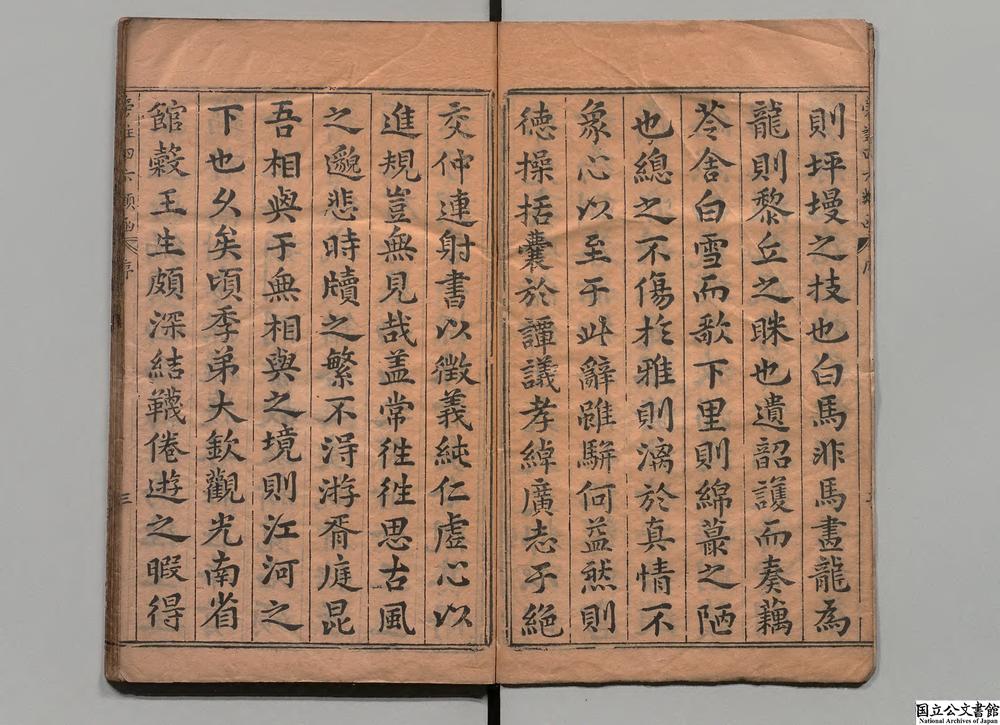 則坪墁之技也白馬非馬畫龍為
龍則黎丘之眯也遺韶護而奏藕
苓舍白雪而歌下里則綿蕞之陋
也總之不傷於雅則漓於真情不
象心以至于此辭雖駢何益然則
徳操括囊於譚議孝綽廣志于絕
交仲連射書以徵義純仁虛心以
進規豈無見哉盖常徃徃思古風
之邈悲時牘之繁不淂游胥庭昆
吾相與于無相與之境則江河之
下也久矣頃季弟大欽觀光南省
館穀王生頗深結韈倦遊之暇得
四六類函 序 三
国立公文書館
National Archives of Japan